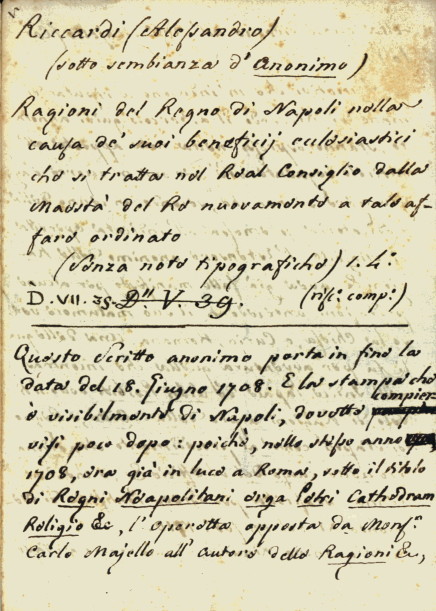 Riccardi (Alessandro)
(sotto sembianza d' Anonimo)
Ragioni del Regno di Napoli nella
causa de' suoi beneficij ecclesiastici
che si tratta nel Real Consiglio dalla
Maestà del Re nuovamente a tale af-
fare ordinato
(Senza note tipografiche) 1. 4.°
D. VII. 35. D.ⁿ V. 39. (risc.ᵒ comp.ᵒ)
Questo Scritto anonimo porta in fine la
data del 18. Giugno 1708. E la stampa che
è visibilmente di Napoli, dovette compier
visi poco dopo: poichè, nello stesso anno
1708, era già in luce a Roma, sotto il titolo
di Regni Neapolitani erga Petri Cathedram
Religio &c, l'operetta opposta da Monsᵍ.ʳ
Carlo Majello all' autore delle Ragioni &c,